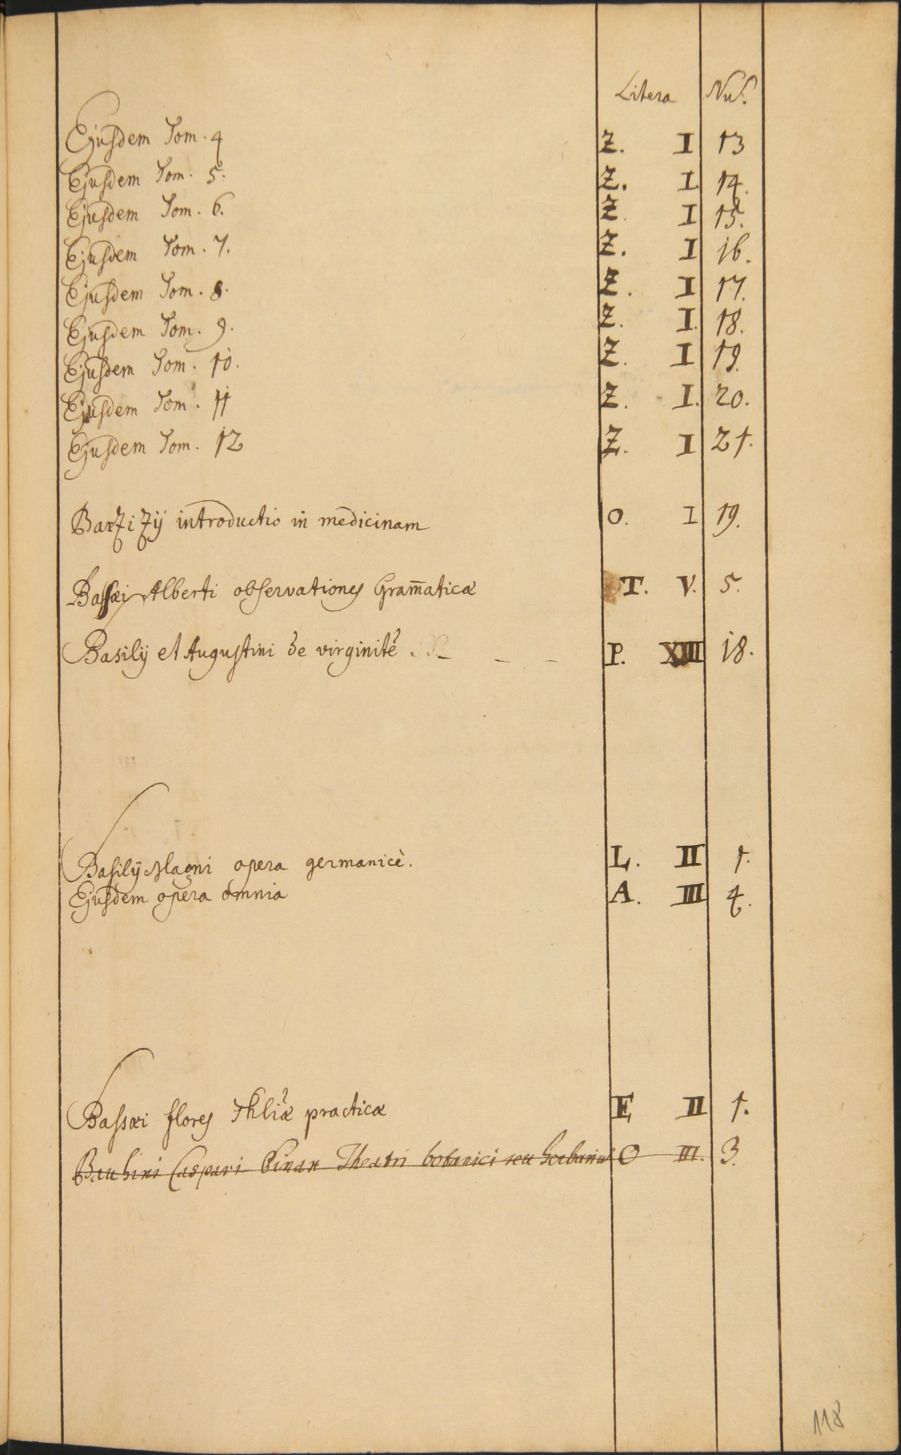 Litera Nus.
Ejusdem Tom. 4 Z. I 13
Ejusdem Tom. 5. Z. I. 14.
Ejusdem Tom. 6. Z. I 15.
Ejusdem Tom. 7. Z. I 16.
Ejusdem Tom. 8. Z. I 17.
Ejusdem Tom. 9. Z. I. 18.
Ejusdem Tom. 10. Z. I 19.
Ejusdem Tom. 11 Z. I. 20.
Ejusdem Tom. 12 Z. I 21.
Barzizij introductio in medicinam O. I 19.
Bassæi Alberti observationes Gram̄aticæ T. V. 5.
Basilij et Augustini de virginitẽ. P. XIII 18.
Basilij Magni opera germanicè. L. II 1.
Ejusdem opera omnia A. III 4.
Bassæi flores Thliæ practicæ E II 1.
Bauhini Caspari Pinax Theatri botanici seu herbarium O III. 3.
118